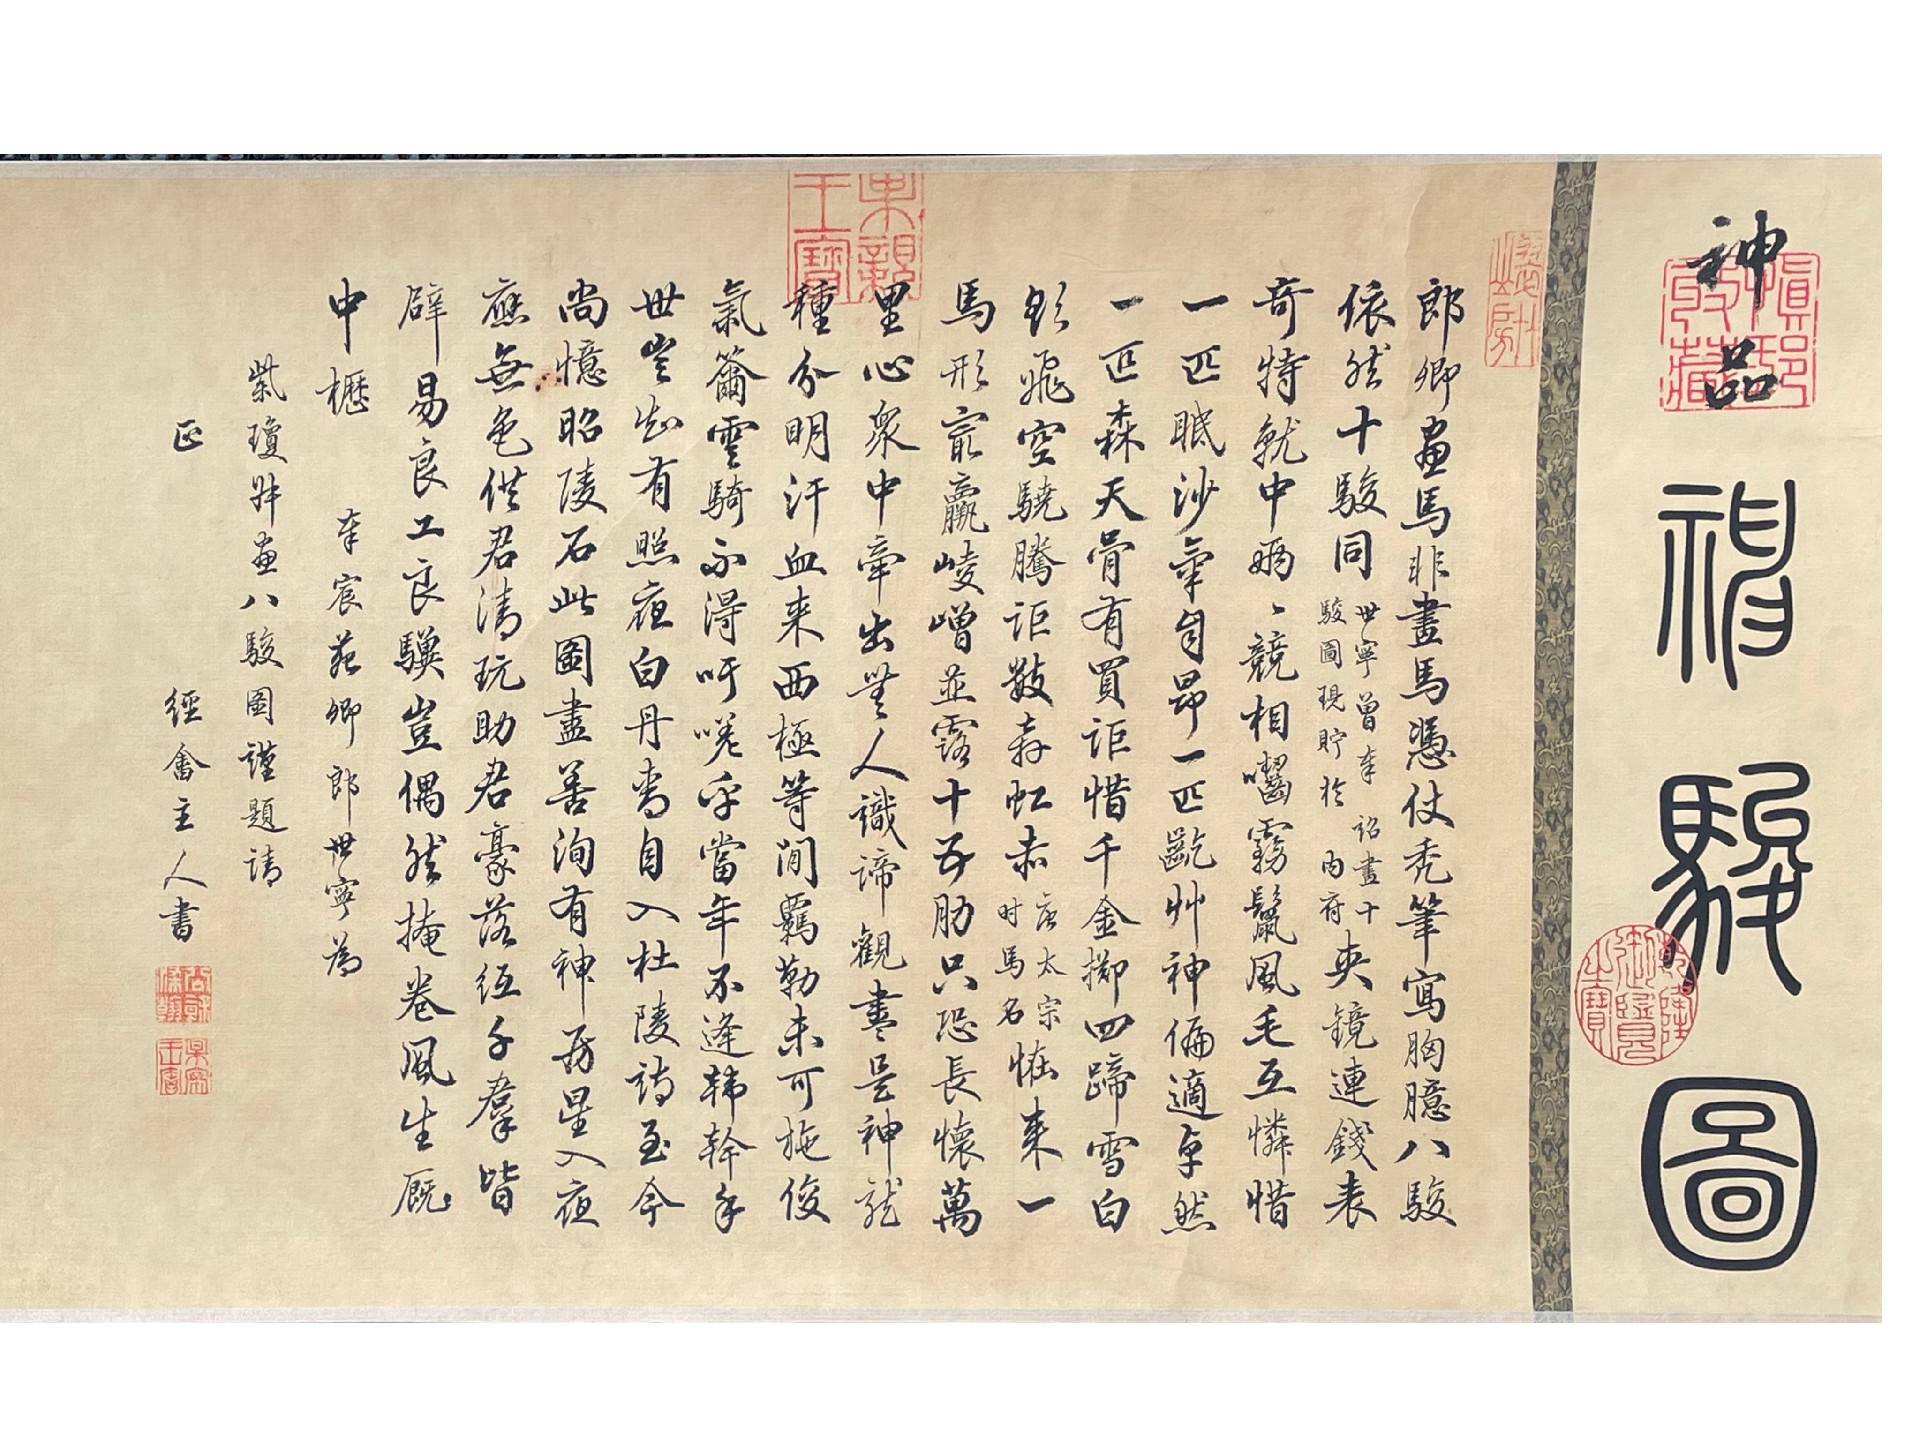 神品
神駿圖
乾隆御覽之寶
郎卿畫馬非畫馬憑仗禿筆寫胸臆八駿
依然十駿同世寧曾奉詔畫十駿圖現貯於内府夾鏡連錢表
奇特就中兩〻競相嚙霧鬣風毛互憐惜
一匹眠沙氣自昂一匹齕艸神偏適卓然
一匹森天骨有買詎惜千金擲四蹄雪白
欲飛空驍騰詎數奔虹赤唐太宗时馬名恠来一
馬形最羸崚嶒並露十五肋只恐長懷萬
里心衆中牽出無人識諦觀盡是神龍
種分明汗血来西極等閒羈勒未可施俊
氣籋雲騎不得吁嗟乎當年不逢韩幹手
世岂知有照夜白丹青自入杜陵詩至今
尚憶昭陵石此圖盡善洵有神房星入夜
應無色供君清玩助君豪落紙千羣皆
辟易良工良驥豈偶然掩卷風生厩
中櫪 奉宸苑卿郎世寧為
紫瓊卅畫八駿図謹題請
正 經畬主人書